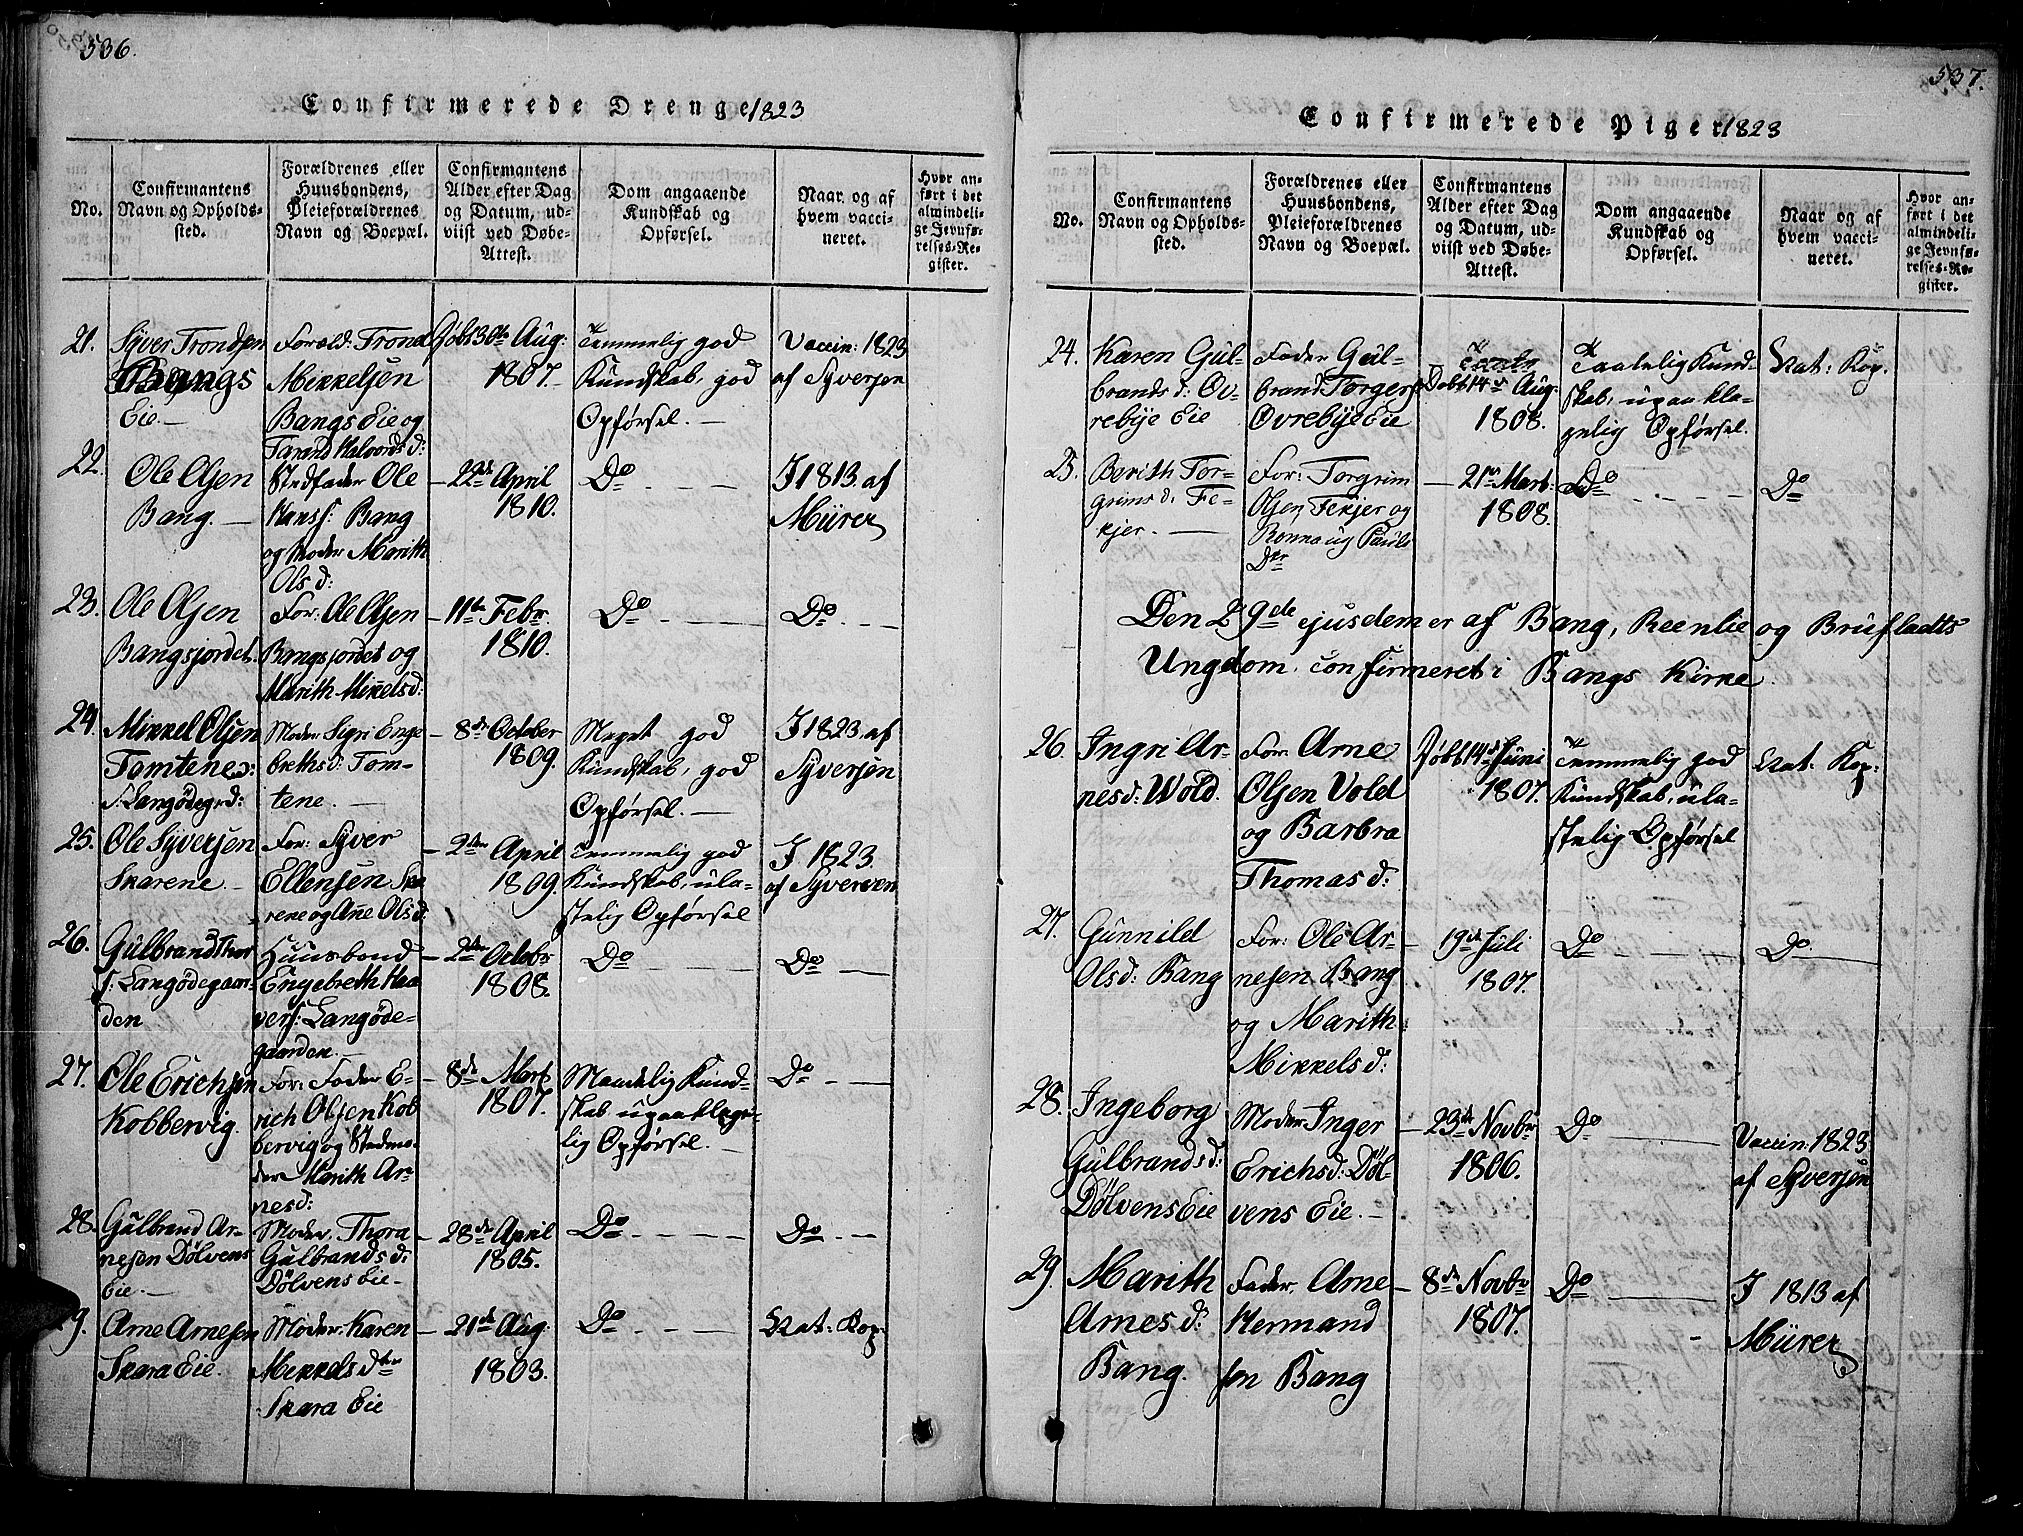 536.
Confirmerede Drenge 1823
No.
Confirmantens
Navn og Opholds-
sted.
Forældrenes eller
Huusbondens,
Pleieforældrenes
Navn og Boepæl.
Confirmantens
Alder efter Dag
og Datum, ud-
viist ved Døbe-
Attest.
Dom angaaende
Kundskab og
Opførsel.
Naar og af
hvem vacci-
neret.
Hvor an-
ført i det
almindeli-
ge Jevnfø-
relses-Re-
gister.
21.
Syver Trondsen
Bangs
Eie.—
Foræld: Trond
Mikkelsen
Bangs Eie og
Tarand Halvords d:
Døbt 30te Aug:
1807.—
Temmelig god
Kundskab, god
Opførsel.—
Vaccin: 1823
af Syversen
22.
Ole Olsen
Bang.—
Stedfader Ole
Hans s: Bang
og Moder Marith
Ols d:
— 22de April
1810.
Do — — —
I 1813 af
Mürer
23.
Ole Olsen
Bangsjordet.
For: Ole Olsen
Bangsjordet og
Marith Mikkelsd:
— 11te Febr.
1810.
Do — — — —
Do — — —
24.
Mikkel Olsen
Tomtene d:
s. Langødegrd:
Moder Sigri Enge
brethsd: Tom-
tene.—
— 8de October
1809.
Meget god
Kundskab, god
Opførsel.—
I 1823 af
Syversen
25.
Ole Syversen
Skarene.—
For: Syver
Ellensen Ska
rene og Ane Olsd:
— 2den April
1809.
Temmelig god
Kundskab, ula-
stelig Opførsel
I 1823
af Syversen
26.
Gulbrand Thor
s: Langødegaar-
den
Huusbond
Engebreth Haa
vers: Langøde-
gaarden.—
— 2den Octobr
1808.
Do — — — —
Do — —
27.
Ole Erichsen
Kobbervig.
For: Fader E-
rich Olsen Kob
bervig og Stedmo-
der Marith Ar-
nesd:
— 8de Mart
1807.
Maadelig Kund-
skab ugaaklage-
lig Opførsel.—
Do — —
28.
Gulbrand Ar-
nesen Dølvens
Eie.—
Moder, Thora
Gulbrands d:
Dølvens Eie.
— 28de April
1805.
Do — — — —
Do — —
29.
Arne Arnesen
Skara Eie.
Moder: Karen
Mikkels dter
Skara Eie
— 21de Aug:
1803.
Do — — — —
Nat: Kop:
537.
Confirmerede Piger 1823
No.
Confirmantens
Navn og Opholds-
sted.
Forældrenes eller
Huusbondens,
Pleieforældrenes
Navn og Boepæl.
Confirmantens
Alder efter Dag
og Datum, ud-
viist ved Døbe-
Attest.
Dom angaaende
Kundskab og
Opførsel.
Naar og af
hvem vacci-
neret.
Hvor an-
ført i det
almindeli-
ge Jevnfø-
relses-Re-
gister.
24.
Karen Gul-
brands d: Øv-
rebye Eie
Fader Gul-
brand Torgers
Øvrebye Eie
Døbt 14de Aug:
1808.
Taalelig Kund-
skab, ugaakla-
gelig Opførsel.
Nat: Kop.
25.
Berith Tor-
grims d: Fe-
kjer.—
For: Torgrim
Olsen Fekjer og
Ronnaug Pauls
Dtr
— 21de Mart:
1808.
Do — — — —
Do
Den 29de ejusdem er af Bang, Reenlie og Brufladts
Ungdom confirmeret i Bangs Kirke.
26.
Ingri Ar-
nesd: Wold.
For: Arne
Olsen Vold
og Barbra
Thomas d:
Døbt 14de Juni
1807.
Temmelig god
Kundskab, ula-
stelig Opførsel
Nat: Kop:
27.
Gunnild
Olsd: Bang
For: Ole Ar-
nesen Bang
og Marith
Mikkels d:
— 19de Juli
1807.
Do — — —
Do — —
28.
Ingeborg
Gulbrands d:
Dølvens Eie
Moder Inger
Erichs d: Døl-
vens Eie.—
— 23de Novbr
1806.
Do ———
Vaccin: 1823
af Syversen
29.
Marith
Arnes d:
Bang.
Fader, Arne
Hermand
sen Bang
— 8de Novbr
1807.
Do ———
I 1813 af
Mürer